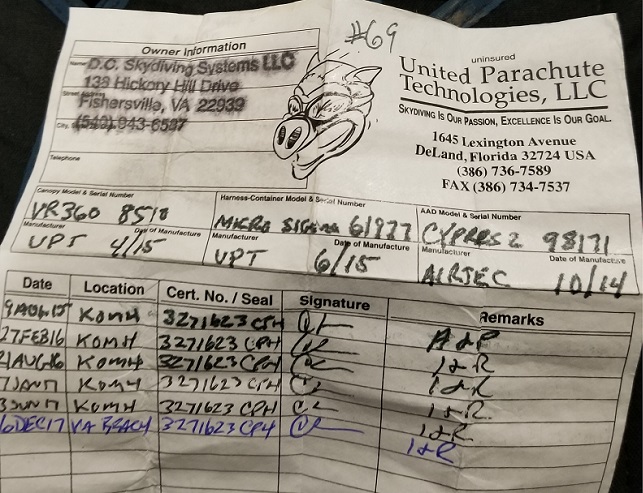 #69
Owner Information
Name D.C. Skydiving Systems LLC
138 Hickory Hill Drive
Street Address
Fishersville, VA 22939
City (540) 943-6587
Telephone
uninsured
United Parachute
Technologies, LLC
SKYDIVING IS OUR PASSION, EXCELLENCE IS OUR GOAL.
1645 Lexington Avenue
DeLand, Florida 32724 USA
(386) 736-7589
FAX (386) 734-7537
Canopy Model & Serial Number
VR360 8518
Manufacturer Date of Manufacture
UPT 4/15
Harness-Container Model & Serial Number
MICRO SIGMA 61977
Manufacturer Date of Manufacture
UPT 6/15
AAD Model & Serial Number
CYPRES 2 98171
Manufacturer Date of Manufacture
AIRTEC 10/14
Date Location Cert. No. / Seal Signature Remarks
9AUG15 KOMH 3271623 CPH A&P
27FEB16 KOMH 3271623 CPH I&R
21AUG16 KOMH 3271623 CPH I&R
7JAN17 KOMH 3271623 CPH I&R
3JUN17 KOMH 3271623 CPH I&R
16DEC17 VA BEACH 3271623 CPH I&R